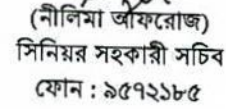 (নীলিমা আফরোজ)
সিনিয়র সহকারী সচিব
ফোন : ৯৫৭২১৮৫